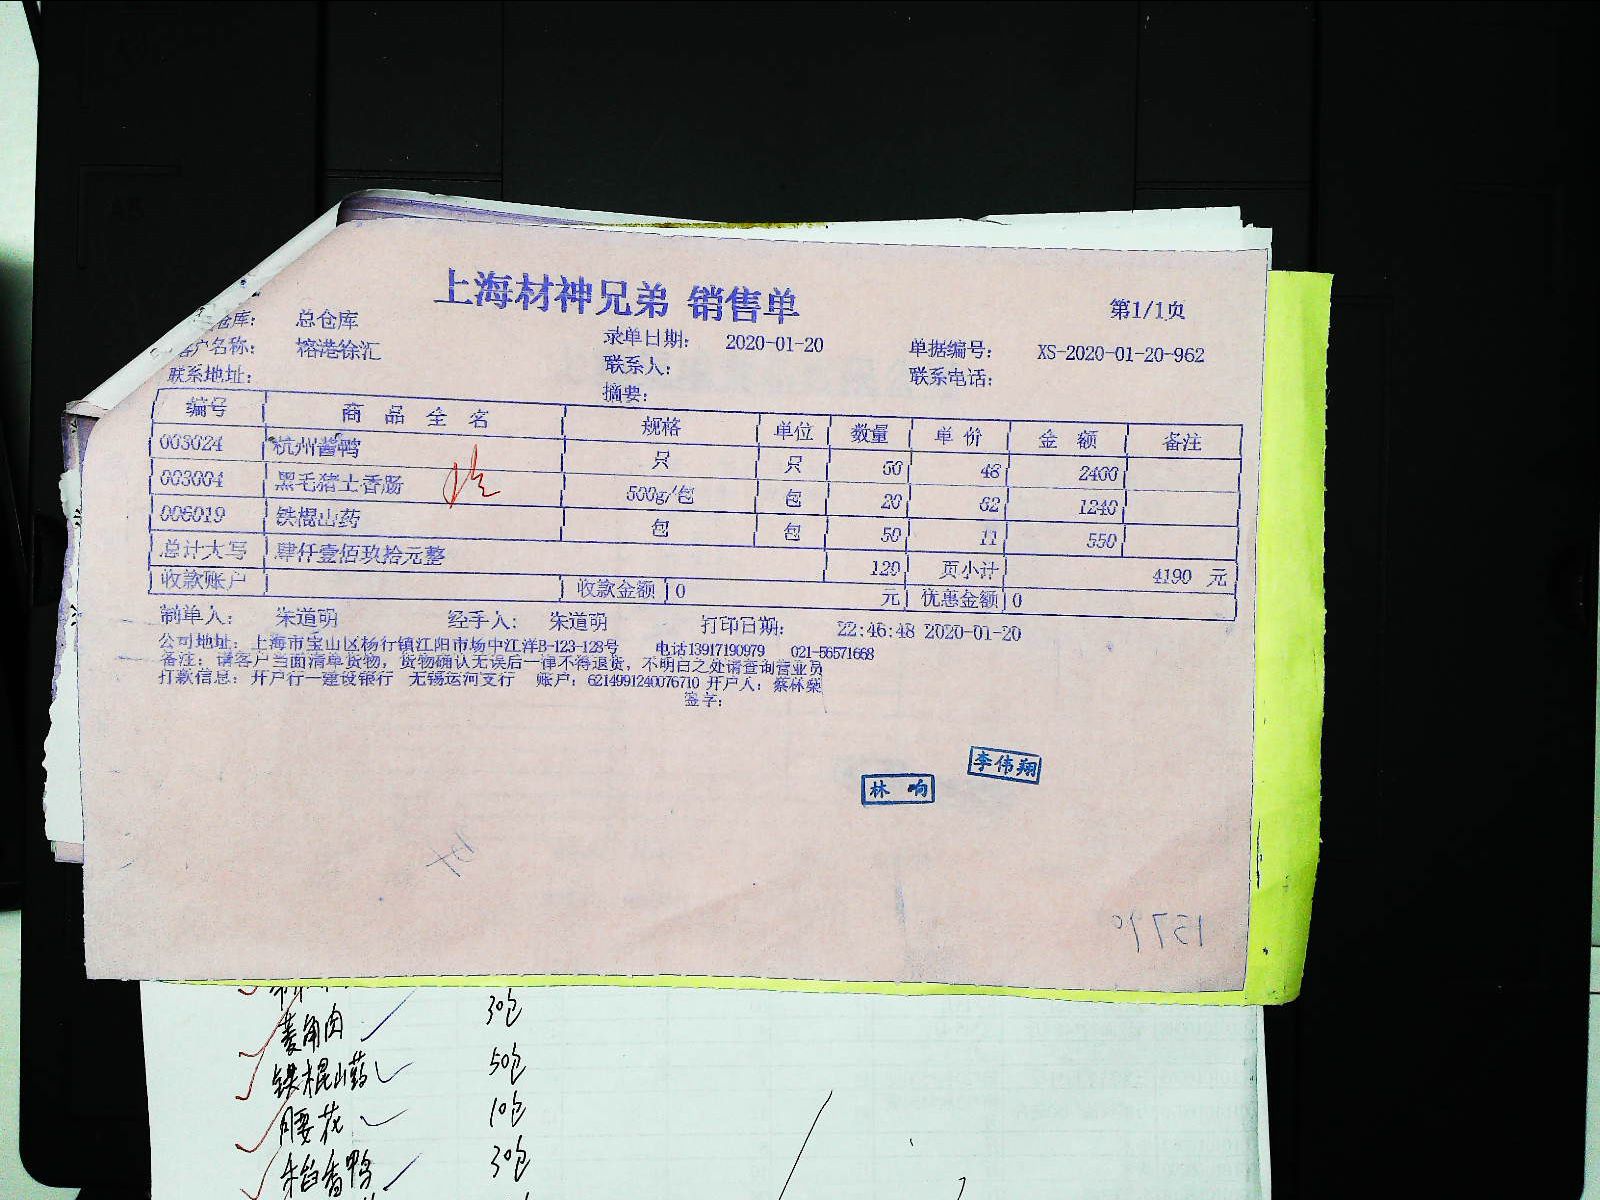 上海材神兄弟 销售单
第1/1页
仓库： 总仓库
录单日期： 2020-01-20
单据编号： XS-2020-01-20-962
客户名称： 榕港徐汇
联系人：
联系电话：
联系地址：
摘要：
编号 商品全名 规格 单位 数量 单价 金额 备注
003024 杭州酱鸭 只 只 50 48 2400
003004 黑毛猪土香肠 500g/包 包 20 62 1240
006019 铁棍山药 包 包 50 11 550
总计大写 肆仟壹佰玖拾元整 120 页小计 4190 元
收款账户 收款金额 0 元 优惠金额 0
制单人： 朱道明 经手人： 朱道明 打印日期： 22:46:48 2020-01-20
公司地址：上海市宝山区杨行镇江阳市场中江洋B-123-128号 电话13917190979 021-56571668
备注：请客户当面清单货物，货物确认无误后一律不得退货，不明白之处请查询营业员
打款信息：开户行—建设银行 无锡运河支行 账户：6214991240076710 开户人：蔡林燊
签字：
李伟翔
林响
30包
菱角肉 50包
铁棍山药 10包
腰花 30包